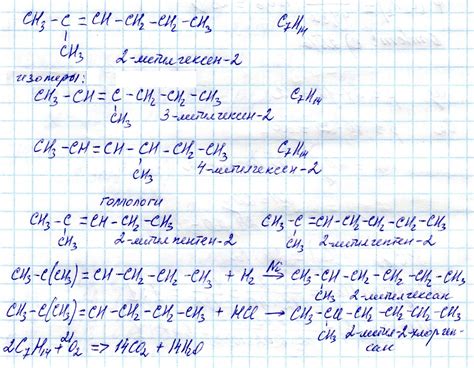 CH₃ – C = CH – CH₂ – CH₂ – CH₃ C₇H₁₄
CH₃ 2-метилгексен-2
изомеры:
CH₃ – CH = C – CH₂ – CH₂ – CH₃ C₇H₁₄
CH₃ 3-метилгексен-2
CH₃ – CH = CH – CH – CH₂ – CH₃ C₇H₁₄
CH₃ 4-метилгексен-2
гомологи
CH₃ – C = CH – CH₂ – CH₃ CH₃ – C = CH – CH₂ – CH₂ – CH₂ – CH₃
CH₃ 2-метилпентен-2 CH₃ 2-метилгептен-2
CH₃ – C(CH₃) = CH – CH₂ – CH₂ – CH₃ + H₂ →Ni CH₃ – CH – CH₂ – CH₂ – CH₂ – CH₃
CH₃ 2-метилгексан
CH₃ – C(CH₃) = CH – CH₂ – CH₂ – CH₃ + HCl → CH₃ – CCl – CH₂ – CH₂ – CH₂ – CH₃
CH₃ 2-метил-2-хлоргек-
сан
2C₇H₁₄ + 21O₂ => 14CO₂ + 14H₂O